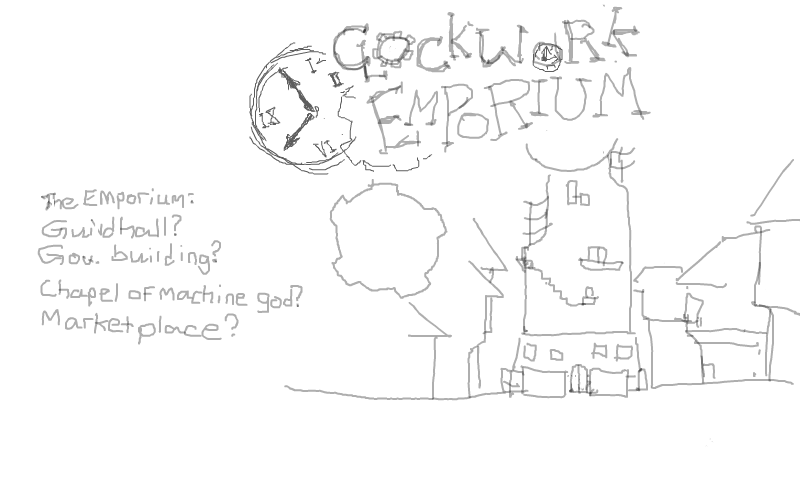 CLOCKWORK
EMPORIUM
I
II
IX
VI
The Emporium:
Guildhall?
Gov. building?
Chapel of machine god?
Marketplace?